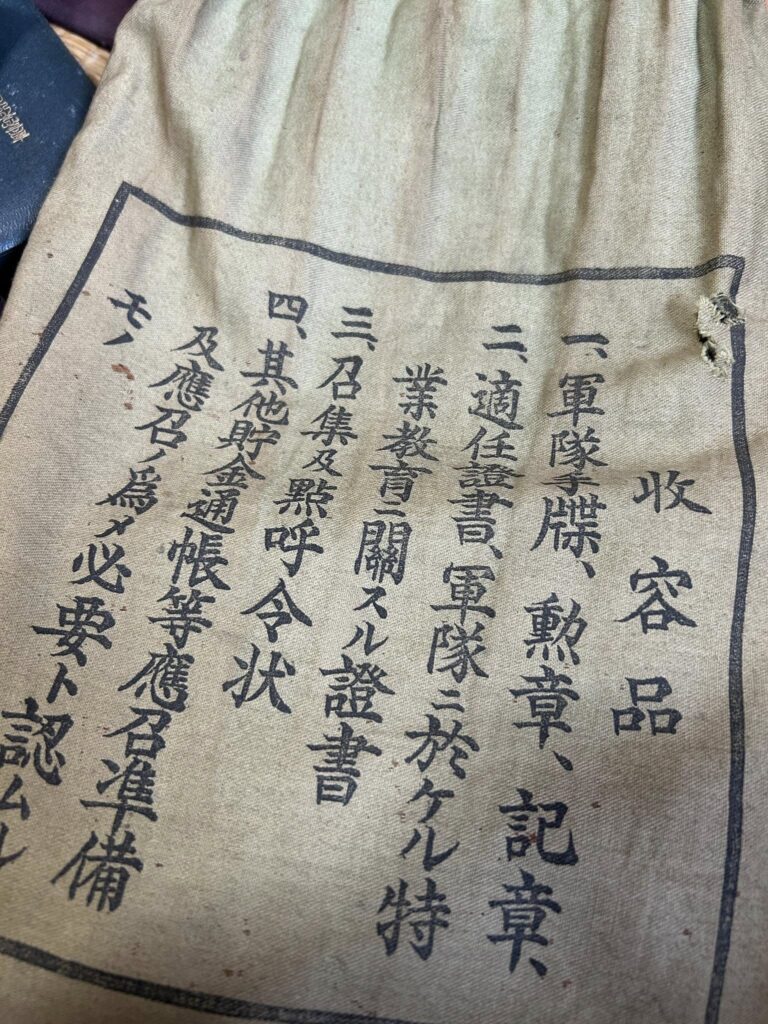 收容品
一、軍隊手牒、勲章、記章、
二、適任證書、軍隊ニ於ケル特
業教育ニ關スル證書
三、召集及點呼令状
四、其他貯金通帳等應召准備
及應召ノ爲メ必要ト認ムル
モノ